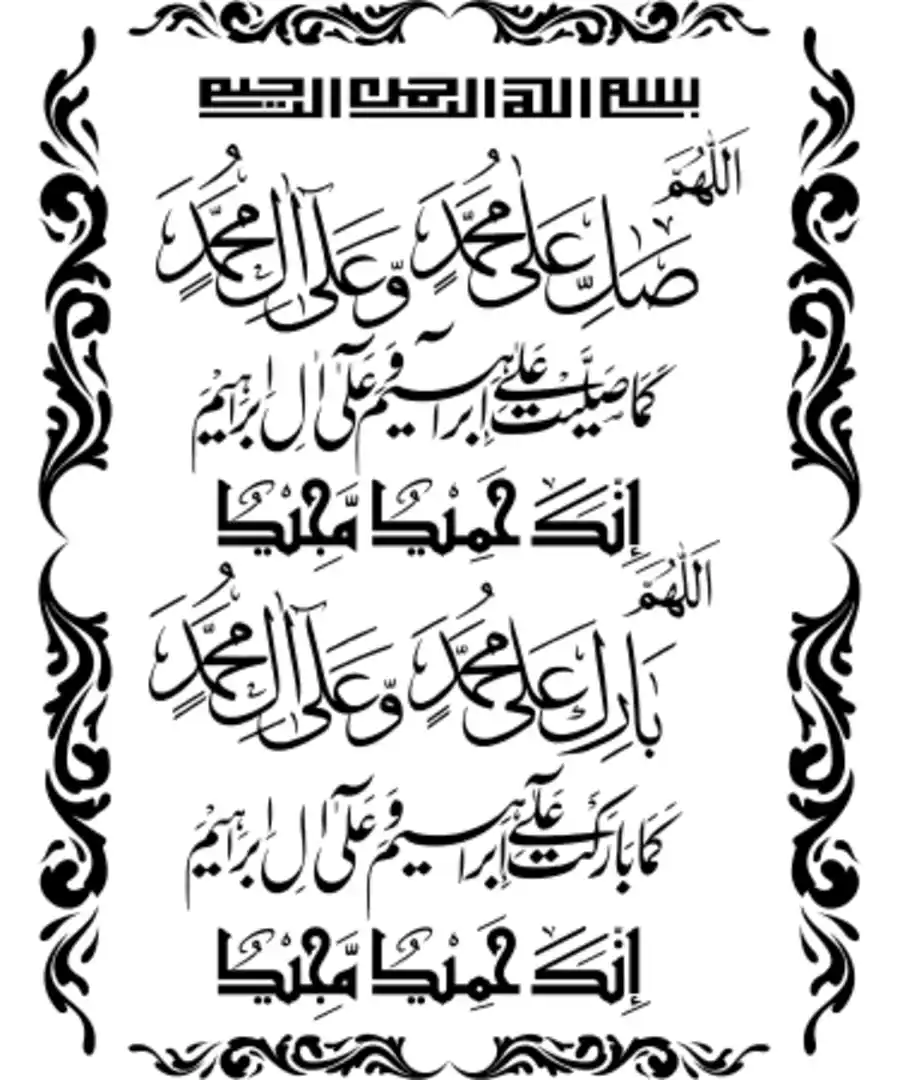 بسم الله الرحمن الرحيم
اَللّٰهُمَّ
صَلِّ عَلٰى مُحَمَّدٍ وَّعَلٰى اٰلِ مُحَمَّدٍ
كَمَا صَلَّيْتَ عَلٰى اِبْرَاهِيْمَ وَعَلٰى اٰلِ اِبْرَاهِيْمَ
اِنَّكَ حَمِيْدٌ مَّجِيْدٌ
اَللّٰهُمَّ
بَارِكْ عَلٰى مُحَمَّدٍ وَّعَلٰى اٰلِ مُحَمَّدٍ
كَمَا بَارَكْتَ عَلٰى اِبْرَاهِيْمَ وَعَلٰى اٰلِ اِبْرَاهِيْمَ
اِنَّكَ حَمِيْدٌ مَّجِيْدٌ